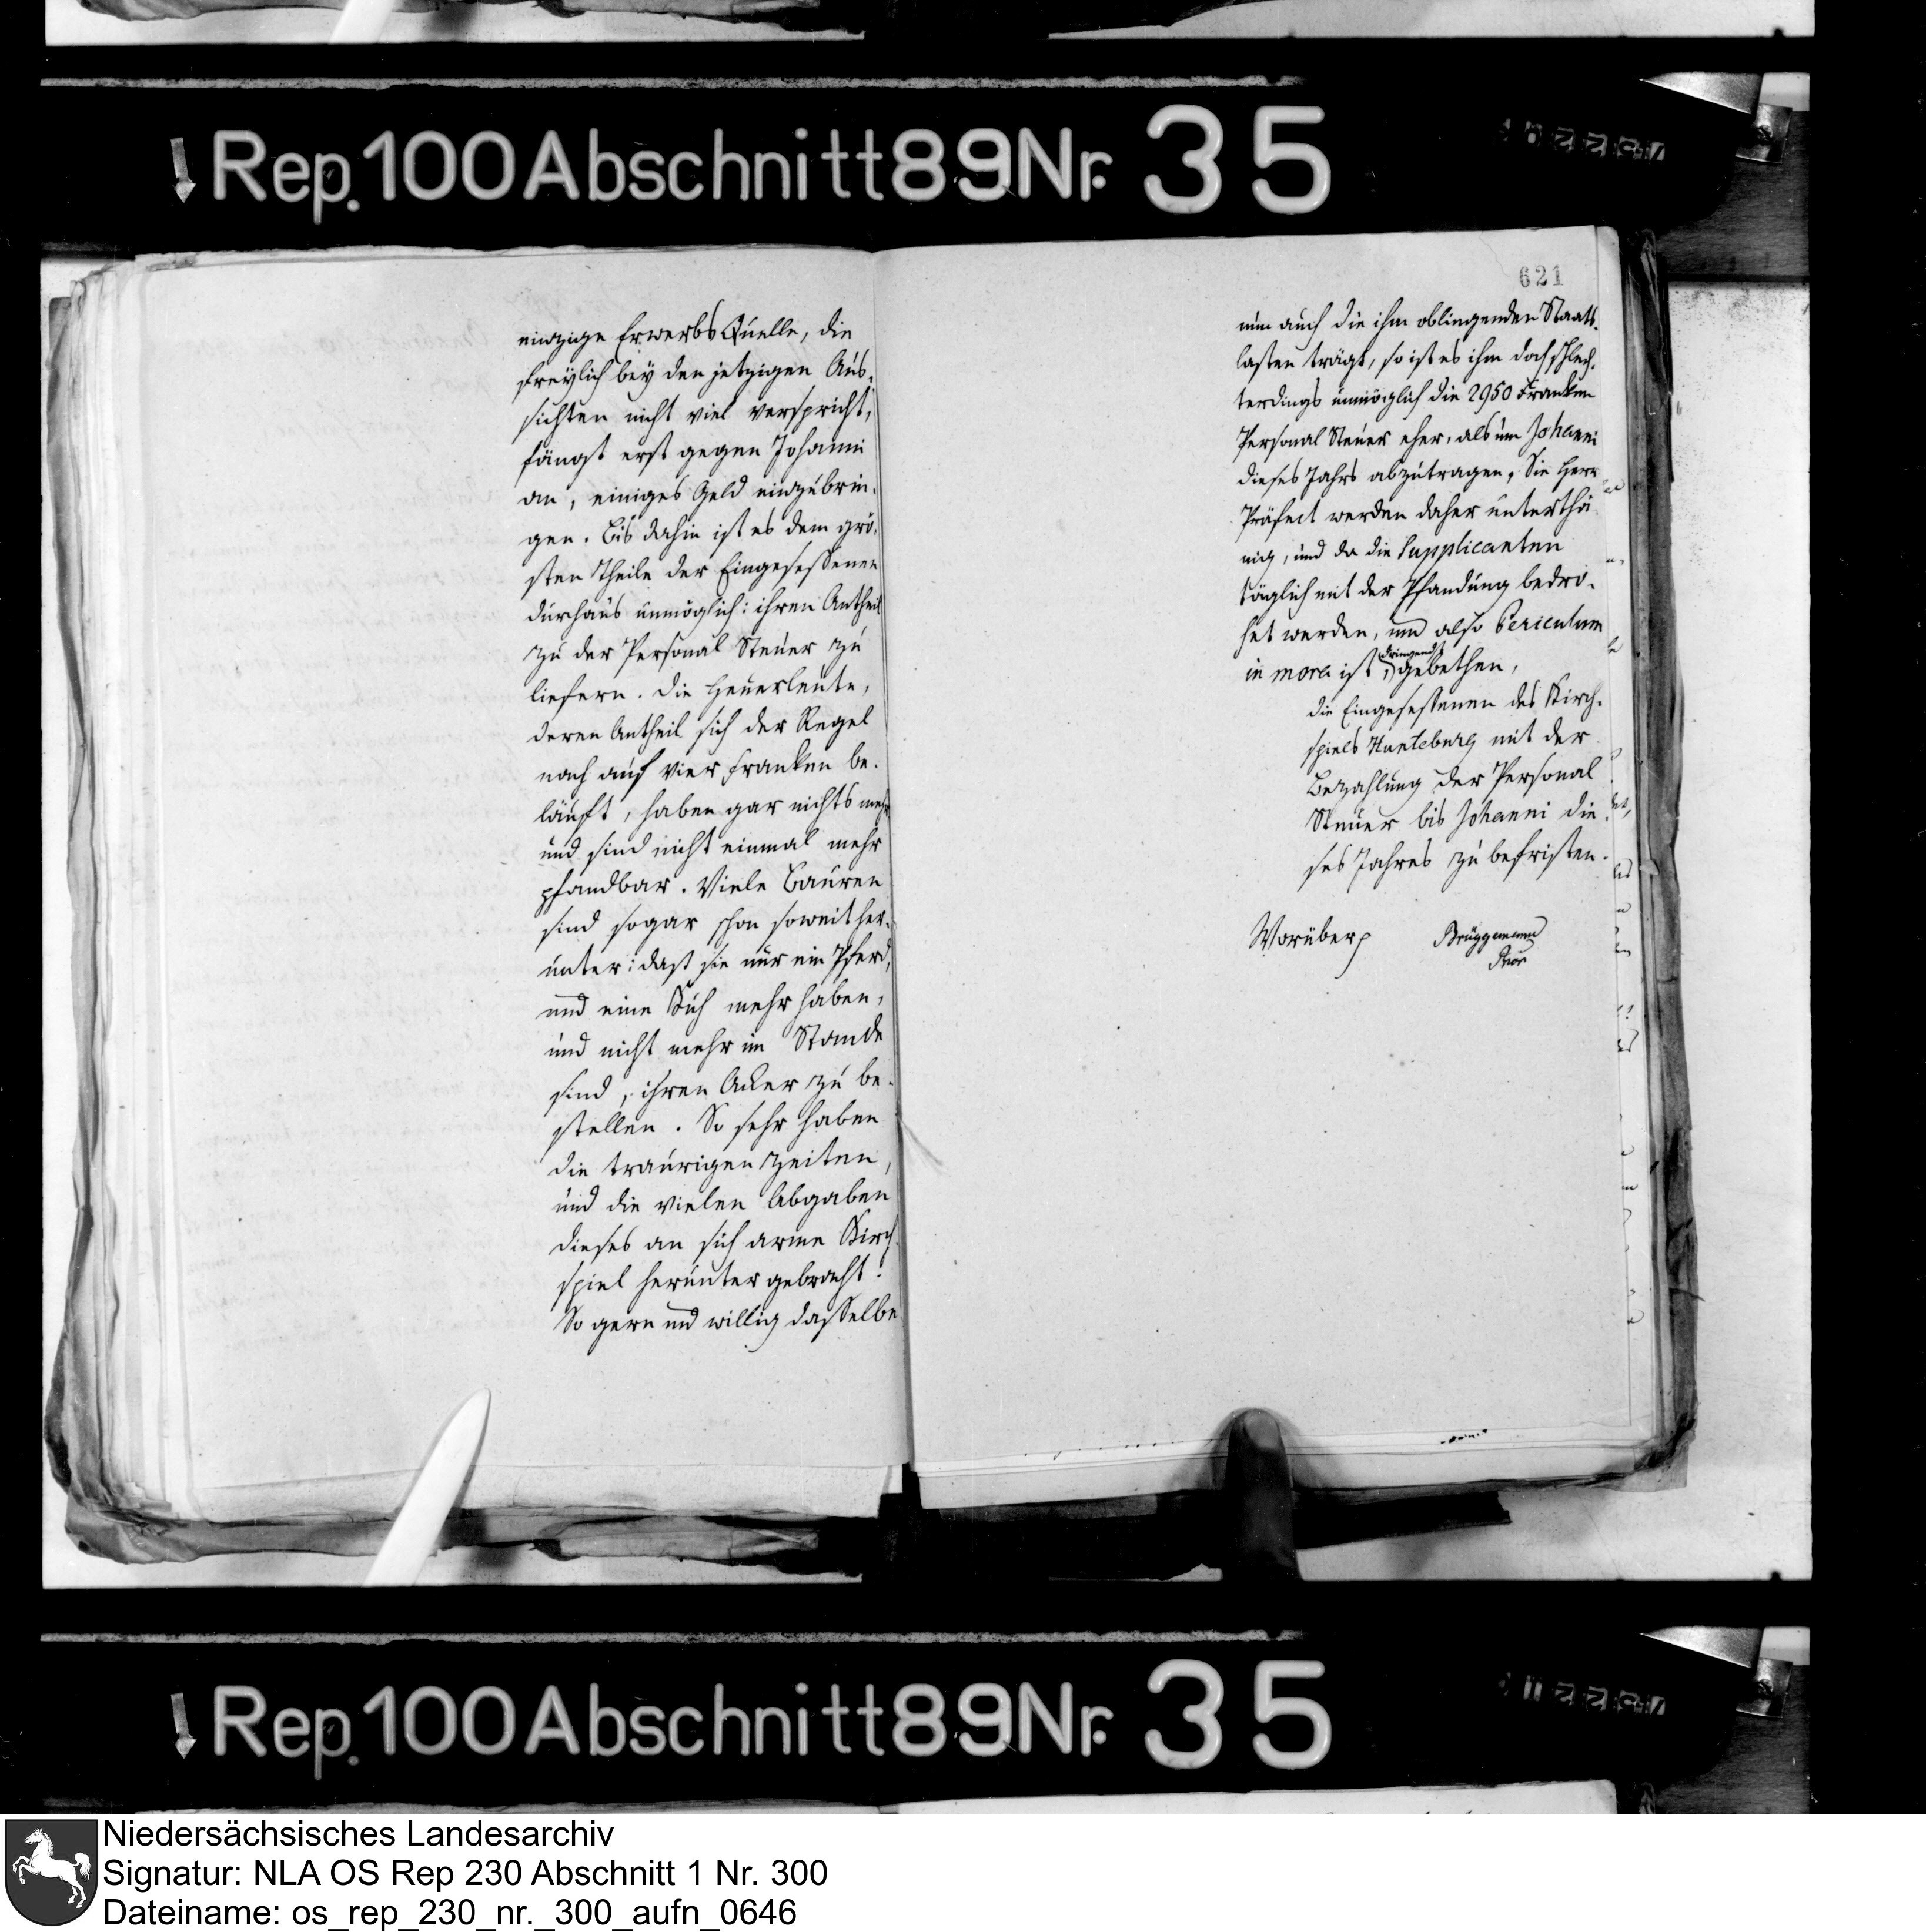 Rep. 100 Abschnitt 89 Nr. 35
einzige Erwerbs Quelle, die
freylich bey den jetzigen Aus-
sichten nicht viel verspricht,
fängt erst gegen Johanni
an, einiges Geld einzubrin-
gen. Bis dahin ist es dem grö-
sten Theile der Eingesessenen
durchaus unmöglich: ihren Antheil
zu der Personal Steuer zu
liefern. Die Heuerleute,
deren Antheil sich der Regel
nach auf vier Franken be-
läuft, haben gar nichts mehr
und sind nicht einmal mehr
pfandbar. Viele Bauren
sind sogar schon soweit her-
unter: daß sie nur ein Pferd,
und eine Kuh mehr haben,
und nicht mehr im Stande
sind, ihren Acker zu be-
stellen. So sehr haben
die traurigen Zeiten,
und die vielen Abgaben
dieses an sich arme Kirch-
spiel herunter gebracht!
So gern und willig dasselbe
621
nun auch die ihm obliegenden Staats-
lasten trägt, so ist es ihm doch schlech-
terdings unmöglich die 2950 Franken
Personal Steuer eher, als um Johanni
dieses Jahrs abzutragen, Sie Herr
Präfect werden daher unterthä-
nig, und da die Supplicanten
täglich mit der Pfandung bedro-
het werden, und also Periculum
in mora ist, dringend gebethen,
die Eingesessenen des Kirch-
spiels Hunteburg mit der
Bezahlung der Personal
Steuer bis Johanni die-
ses Jahres zu befristen.
Worüber
Brüggemann
Rep. 100 Abschnitt 89 Nr. 35
Niedersächsisches Landesarchiv
Signatur: NLA OS Rep 230 Abschnitt 1 Nr. 300
Dateiname: os_rep_230_nr._300_aufn_0646